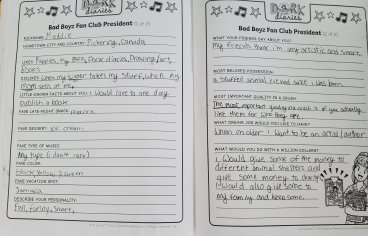 DORK
diaries
Bad Boyz Fan Club President (1 of 2)
NICKNAME Maddie
HOMETOWN CITY AND COUNTRY Pickering, Canada
LIKES Puppies, my BFF, Dork diaries, Drawing/art,
DISLIKES When my sister takes my stuff, when my
mom yells at me,
LITTLE KNOWN FACTS ABOUT YOU I would love to one day
publish a book
FAVE LATE-NIGHT SNACK
FAVE DESSERT ice cream
FAVE TYPE OF MUSIC
Any type (I don't care)
FAVE COLOR
black, yellow, & green
FAVE VACATION SPOT
Jamaica
DESCRIBE YOUR PERSONALITY
Fun, Funny, Smart,
DORK
diaries
Bad Boyz Fan Club President (2 of 2)
WHAT YOUR FRIENDS SAY ABOUT YOU?
my friends think i'm very artistic and smart
MOST BELOVED POSSESSION
a stuffed animal i've had since i was born
MOST IMPORTANT QUALITY IN A CRUSH
The most important quality in a crush is if you actually
like them for who they are.
WHAT DREAM JOB WOULD YOU LIKE TO HAVE?
when i'm older I want to be an actress/author
WHAT WOULD YOU DO WITH A MILLION DOLLARS?
I would give some of the money to
different animal shelters and
give some money to charity
I would also give some to
my family and keep some.